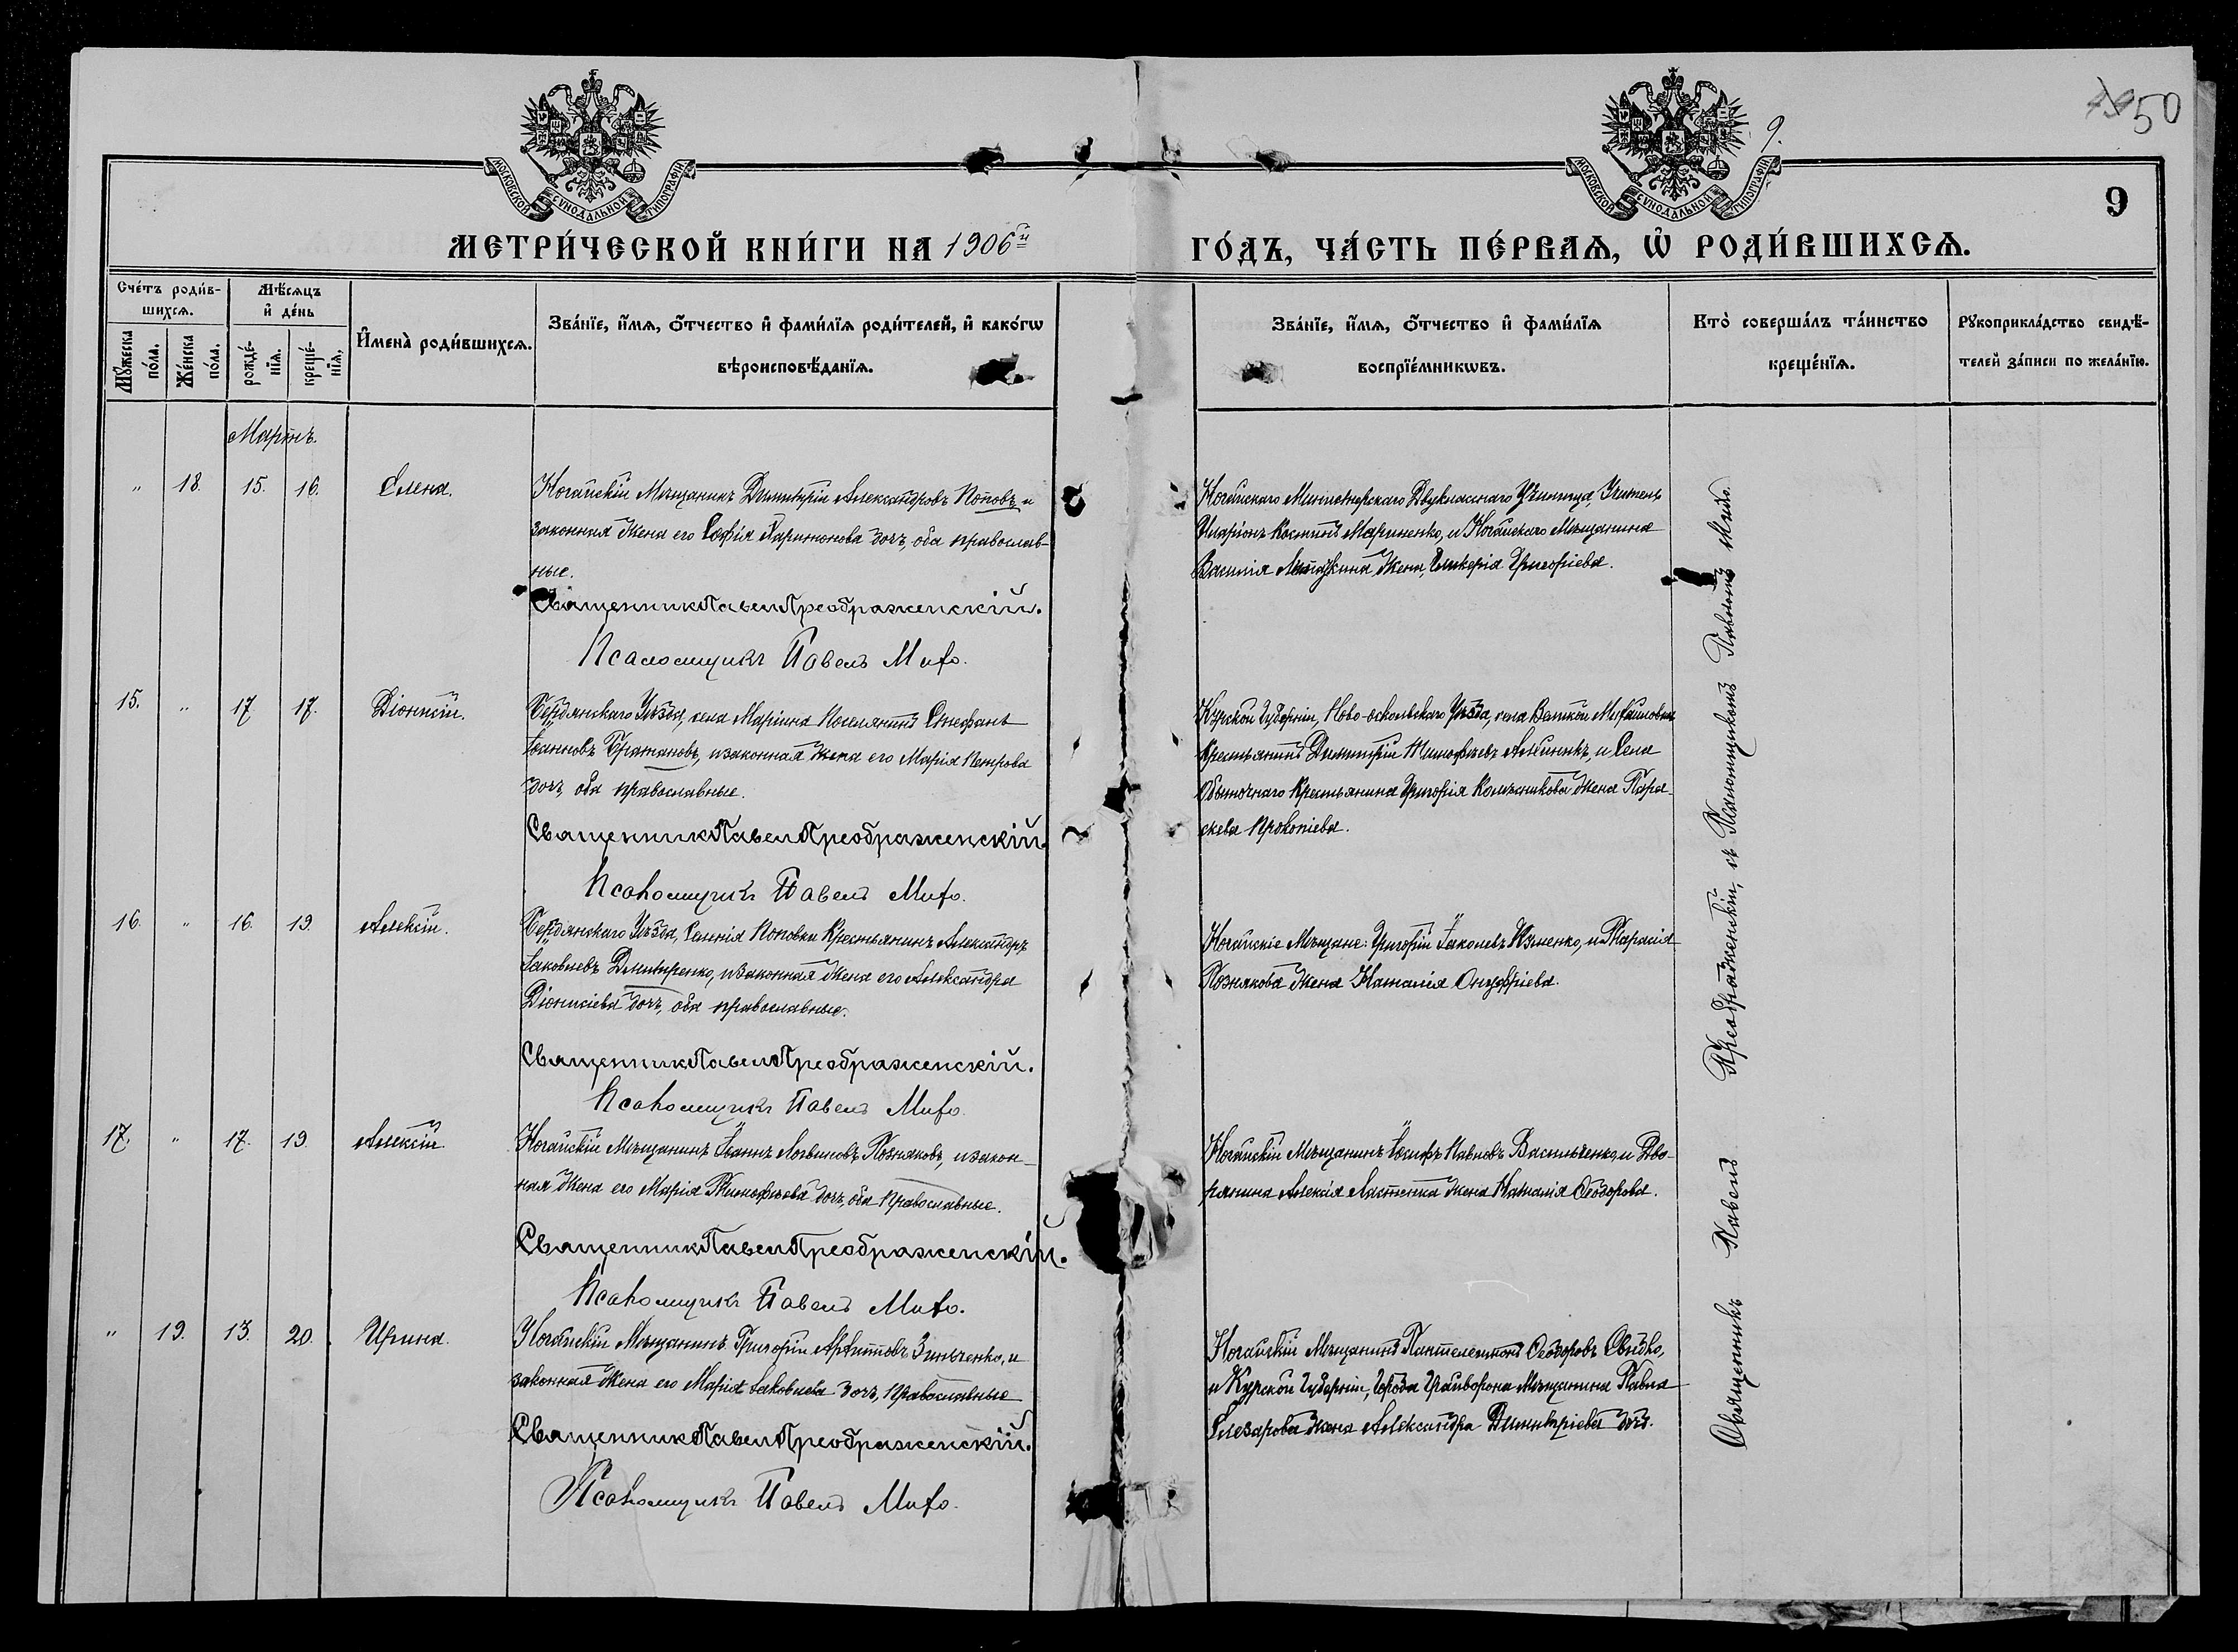 50
9.
9
МОСКОВСКОЙ СУНОДАЛЬНОЙ ТИПОГРАФІИ
МОСКОВСКОЙ СУНОДАЛЬНОЙ ТИПОГРАФІИ
МЕТРИ́ЧЕСКОЙ КНИ́ГИ НА 1906й
ГО́ДЪ, ЧА́СТЬ ПЕ́РВАѦ, Ѡ҆ РОДИ́ВШИХСѦ.
Сче́тъ роди́в-
шихсѧ.
Мꙋ́жеска по́ла.
Же́нска по́ла.
Мѣ́сѧцъ
и҆ де́нь
рожде́-
нїѧ.
креще́-
нїѧ.
И҆мена̀ роди́вшихсѧ.
Зва́нїе, и҆́мѧ, ѻ҆́тчество и҆ фами́лїѧ роди́телей, и҆ како́гѡ
вѣроисповѣ́данїѧ.
Зва́нїе, и҆́мѧ, ѻ҆́тчество и҆ фами́лїѧ
воспрїе́мникѡвъ.
Кто̀ соверша́лъ та́инство
креще́нїѧ.
Рꙋкоприкла́дство свидѣ́-
телей за́писи по жела́нїю.
Мартъ.
" 18. 15. 16. Елена.
Ногайскій Мѣщанинъ Димитрій Александровъ Поповъ и
законная жена его Софія Харитонова дочь, оба православ-
ные.
Священникъ Павелъ Преображенскій.
Псаломщикъ Павелъ Мито.
Ногайскаго Министерскаго Двукласснаго Училища, Учитель
Иларіонъ Мариненко, и Ногайскаго Мѣщанина
Василія жена, Гликерія Григоріева.
15. " 17. 17. Діонисій.
Бердянскаго Уѣзда, села Маріина Поселянинъ Стефанъ
Іоанновъ Братановъ, и законная жена его Марія Петрова
дочь, оба православные.
Священникъ Павелъ Преображенскій.
Псаломщикъ Павелъ Мито.
Курской Губерніи, Ново-оскольскаго Уѣзда, села Великой Михайловки
Крестьянинъ Димитрій Тимофѣевъ и Села
Обыточнаго Крестьянина Григорія Колѣсникова жена Пара-
скева Прокопіева.
16. " 16. 19. Алексій.
Бердянскаго Уѣзда, Селенія Поповки Крестьянинъ Александръ
Іаковлевъ Дмитренко, и законная жена его Александра
Діонисіева дочь, оба православные.
Священникъ Павелъ Преображенскій.
Псаломщикъ Павелъ Мито.
Ногайскіе Мѣщане: Григорій Іаковлевъ и Тарасія
Познякова жена Наталія Онуфріева.
17. " 17. 19. Алексій.
Ногайскій Мѣщанинъ Іоаннъ Логвиновъ Позняковъ, и закон-
ная жена его Марія Тимофѣева дочь, оба Православные.
Священникъ Павелъ Преображенскій.
Псаломщикъ Павелъ Мито.
Ногайскій Мѣщанинъ Іосифъ Павловъ Васильченко, и Дво-
рянина Алексія жена Наталія Ѳеодорова.
" 19. 13. 20. Ирина.
Ногайскій Мѣщанинъ Григорій Архиповъ Зинченко, и
законная жена его Марія Іаковлева дочь, Православные
Священникъ Павелъ Преображенскій.
Псаломщикъ Павелъ Мито.
Ногайскій Мѣщанинъ Пантелеимонъ Ѳеодоровъ
и Курской Губерніи, Города Грайворона Мѣщанина Павла
Слезарова жена Александра Димитріева дочь.
Священникъ Павелъ Преображенскій, съ Псаломщикомъ Павломъ Мито.